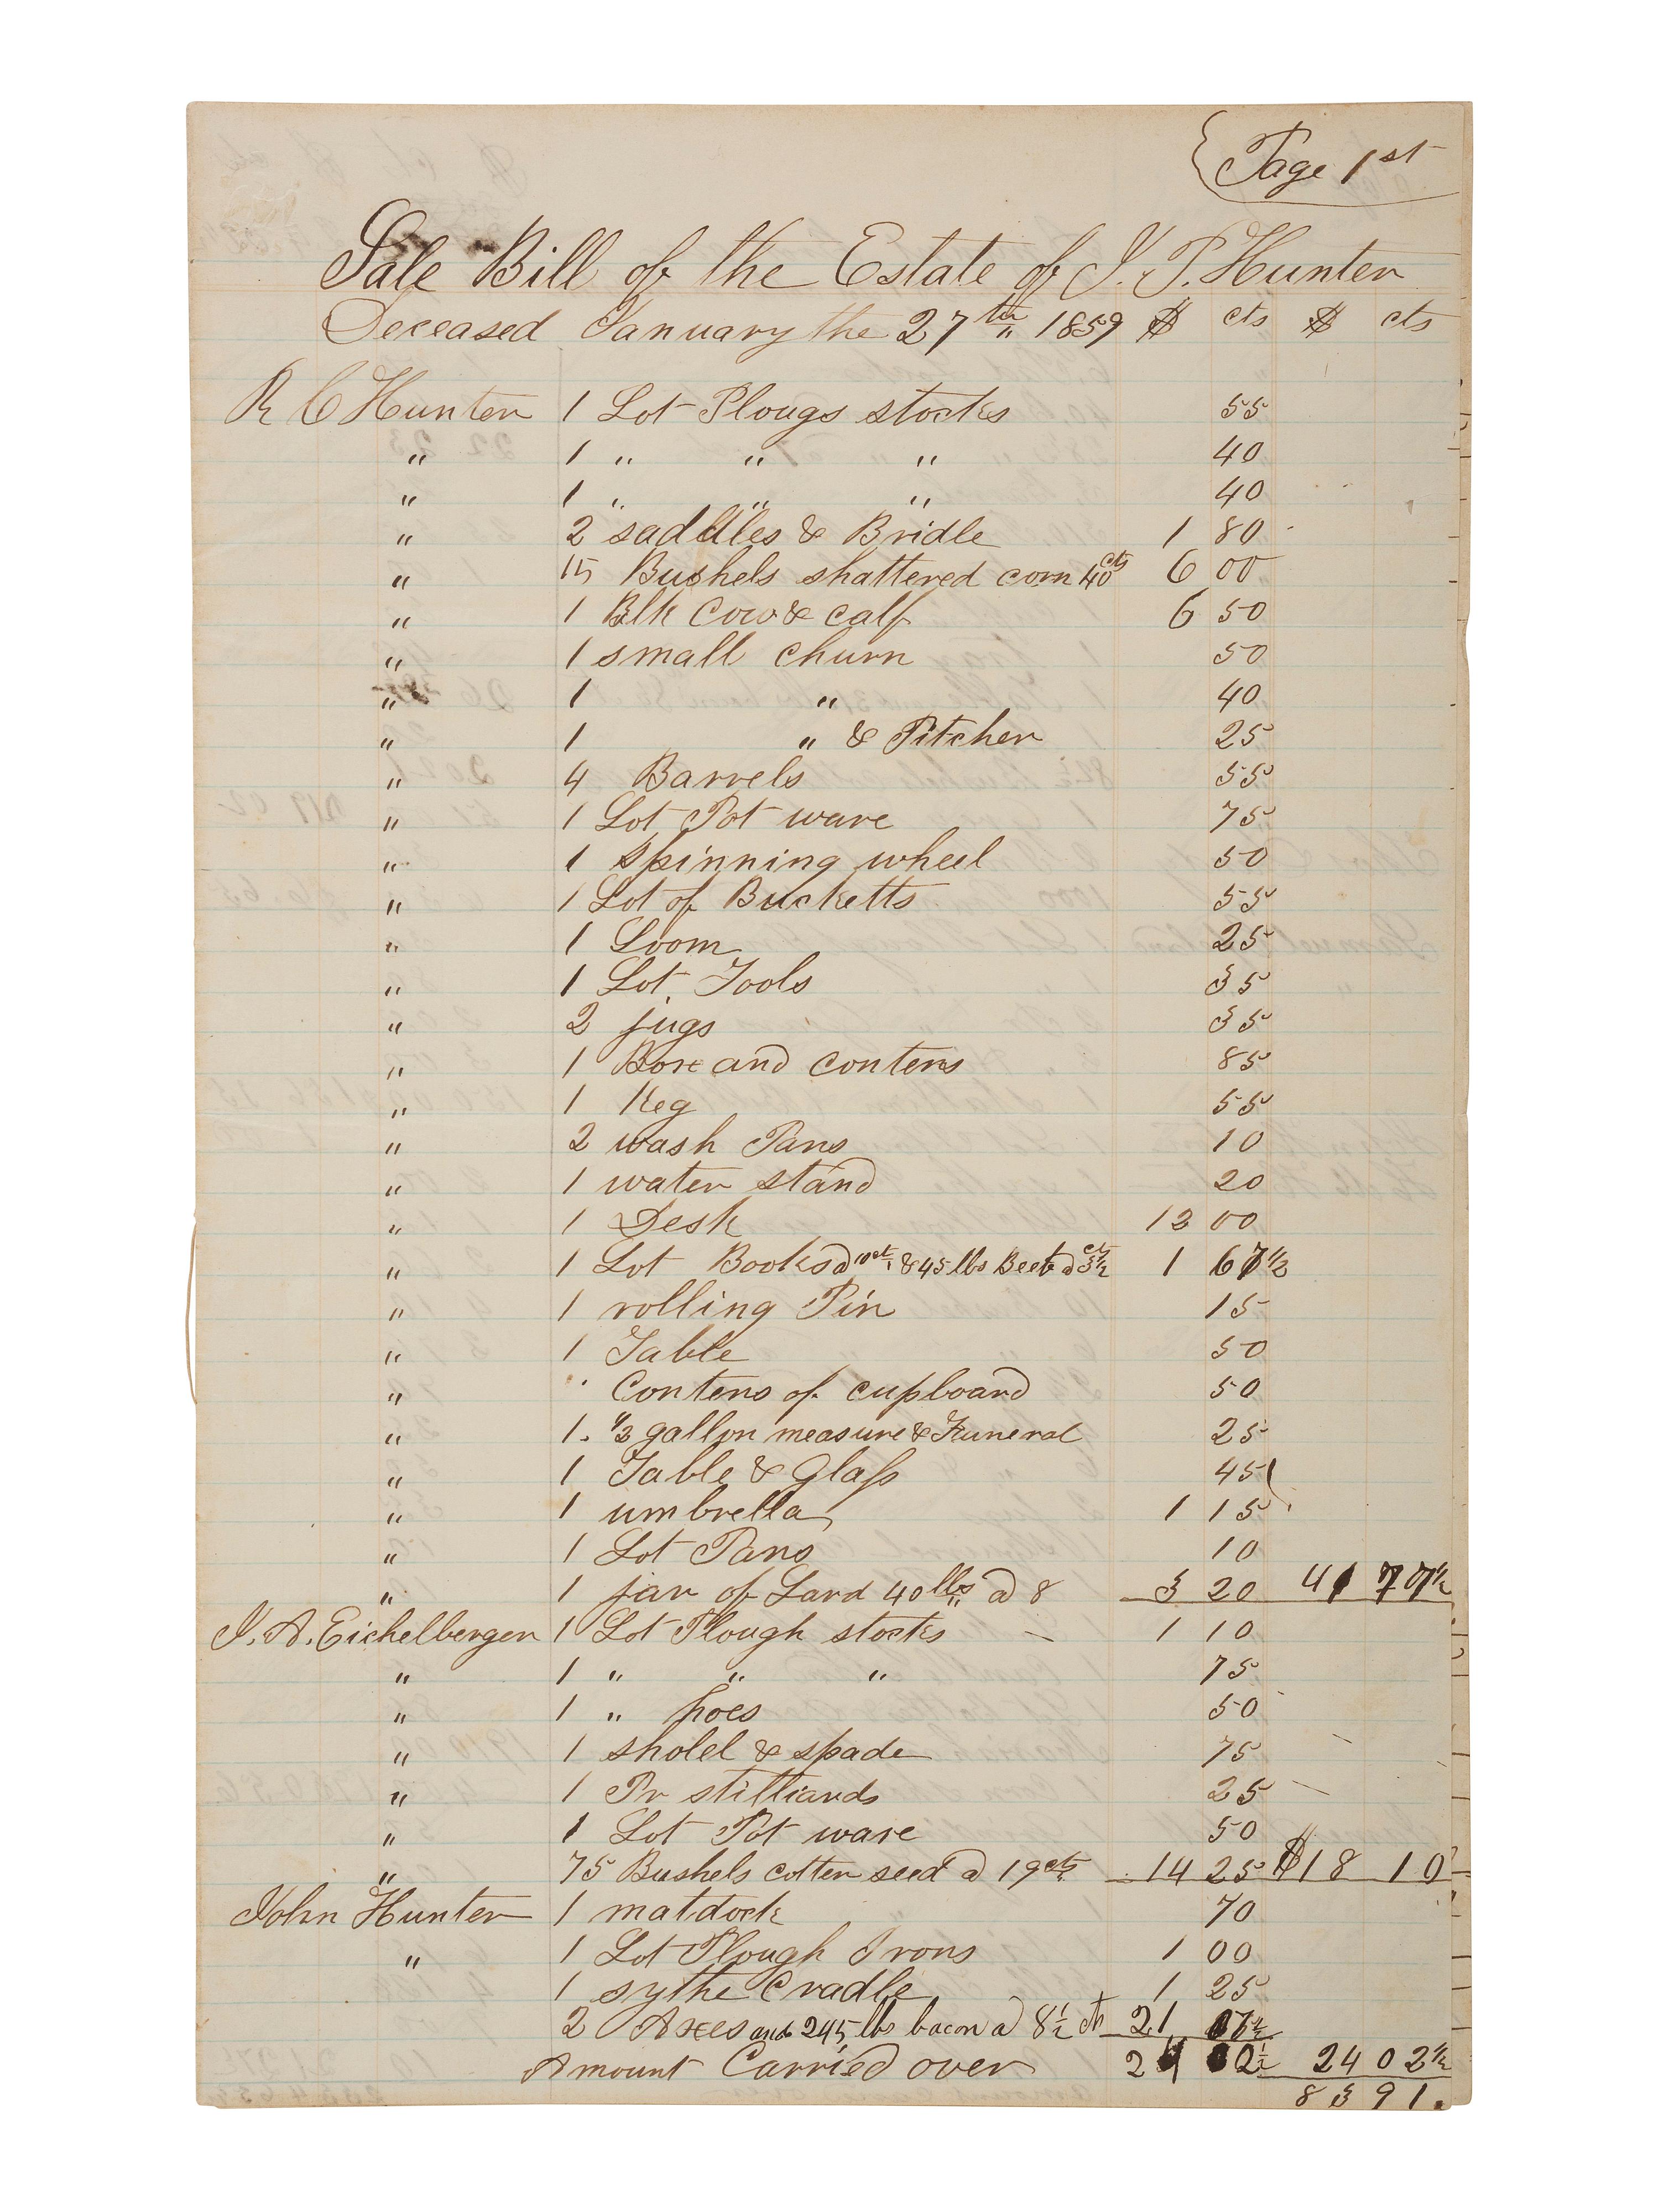 Page 1st
Sale Bill of the Estate of J. P. Hunter
Deceased January the 27th " 1859 $ cts $ cts
R C Hunter 1 Lot Plougs stocks 55
" 1 " " " 40
" 1 " " " 40
" 2 saddles & Bridle 1 80
" 15 Bushels shattered corn 40 cts 6 00
" 1 Blk Cow & calf 6 50
" 1 small churn 50
" 1 " 40
" 1 " & Pitcher 25
" 4 Barrels 55
" 1 Lot Pot ware 75
" 1 spinning wheel 50
" 1 Lot of Bucketts 55
" 1 Loom 25
" 1 Lot Tools 35
" 2 jugs 35
" 1 Box and contens 85
" 1 Keg 55
" 2 wash Pans 10
" 1 water stand 20
" 1 Desk 12 00
" 1 Lot Books a 10 ct & 45 lbs Beef a 3 1/2 cts 1 67 1/2
" 1 rolling Pin 15
" 1 Table 50
" Contens of cupboard 50
" 1. 1/2 gallon measure & Funeral 25
" 1 Table & Glass 45
" 1 umbrella 1 15
" 1 Lot Pans 10
" 1 jar of Lard 40 lbs a 8 3 20 41 77 1/2
J. A. Eichelberger 1 Lot Plough stocks 1 10
" 1 " " " 75
" 1 " hoes 50
" 1 sholel & spade 75
" 1 Pr stilliards 25
" 1 Lot Pot ware 50
" 75 Bushels cotten seed a 19 cts 14 25 $18 10
John Hunter 1 matdock 70
" 1 Lot Plough Irons 1 00
1 sythe Cradle 1 25
2 Axes and 245 lbs bacon a 8 1/2 cts 21 07 1/2
Amount Carried over 24 02 1/2 24 02 1/2
83 91.